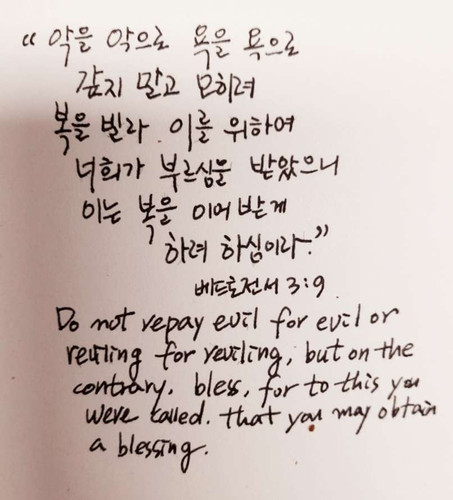 “악을 악으로 욕을 욕으로
갚지 말고 도리혀
복을 빌라 이를 위하여
너희가 부르심을 받았으니
이는 복을 이어 받게
하려 하심이라.”
베드로전서 3:9
Do not repay evil for evil or
reviling for reviling, but on the
contrary, bless, for to this you
were called, that you may obtain
a blessing.